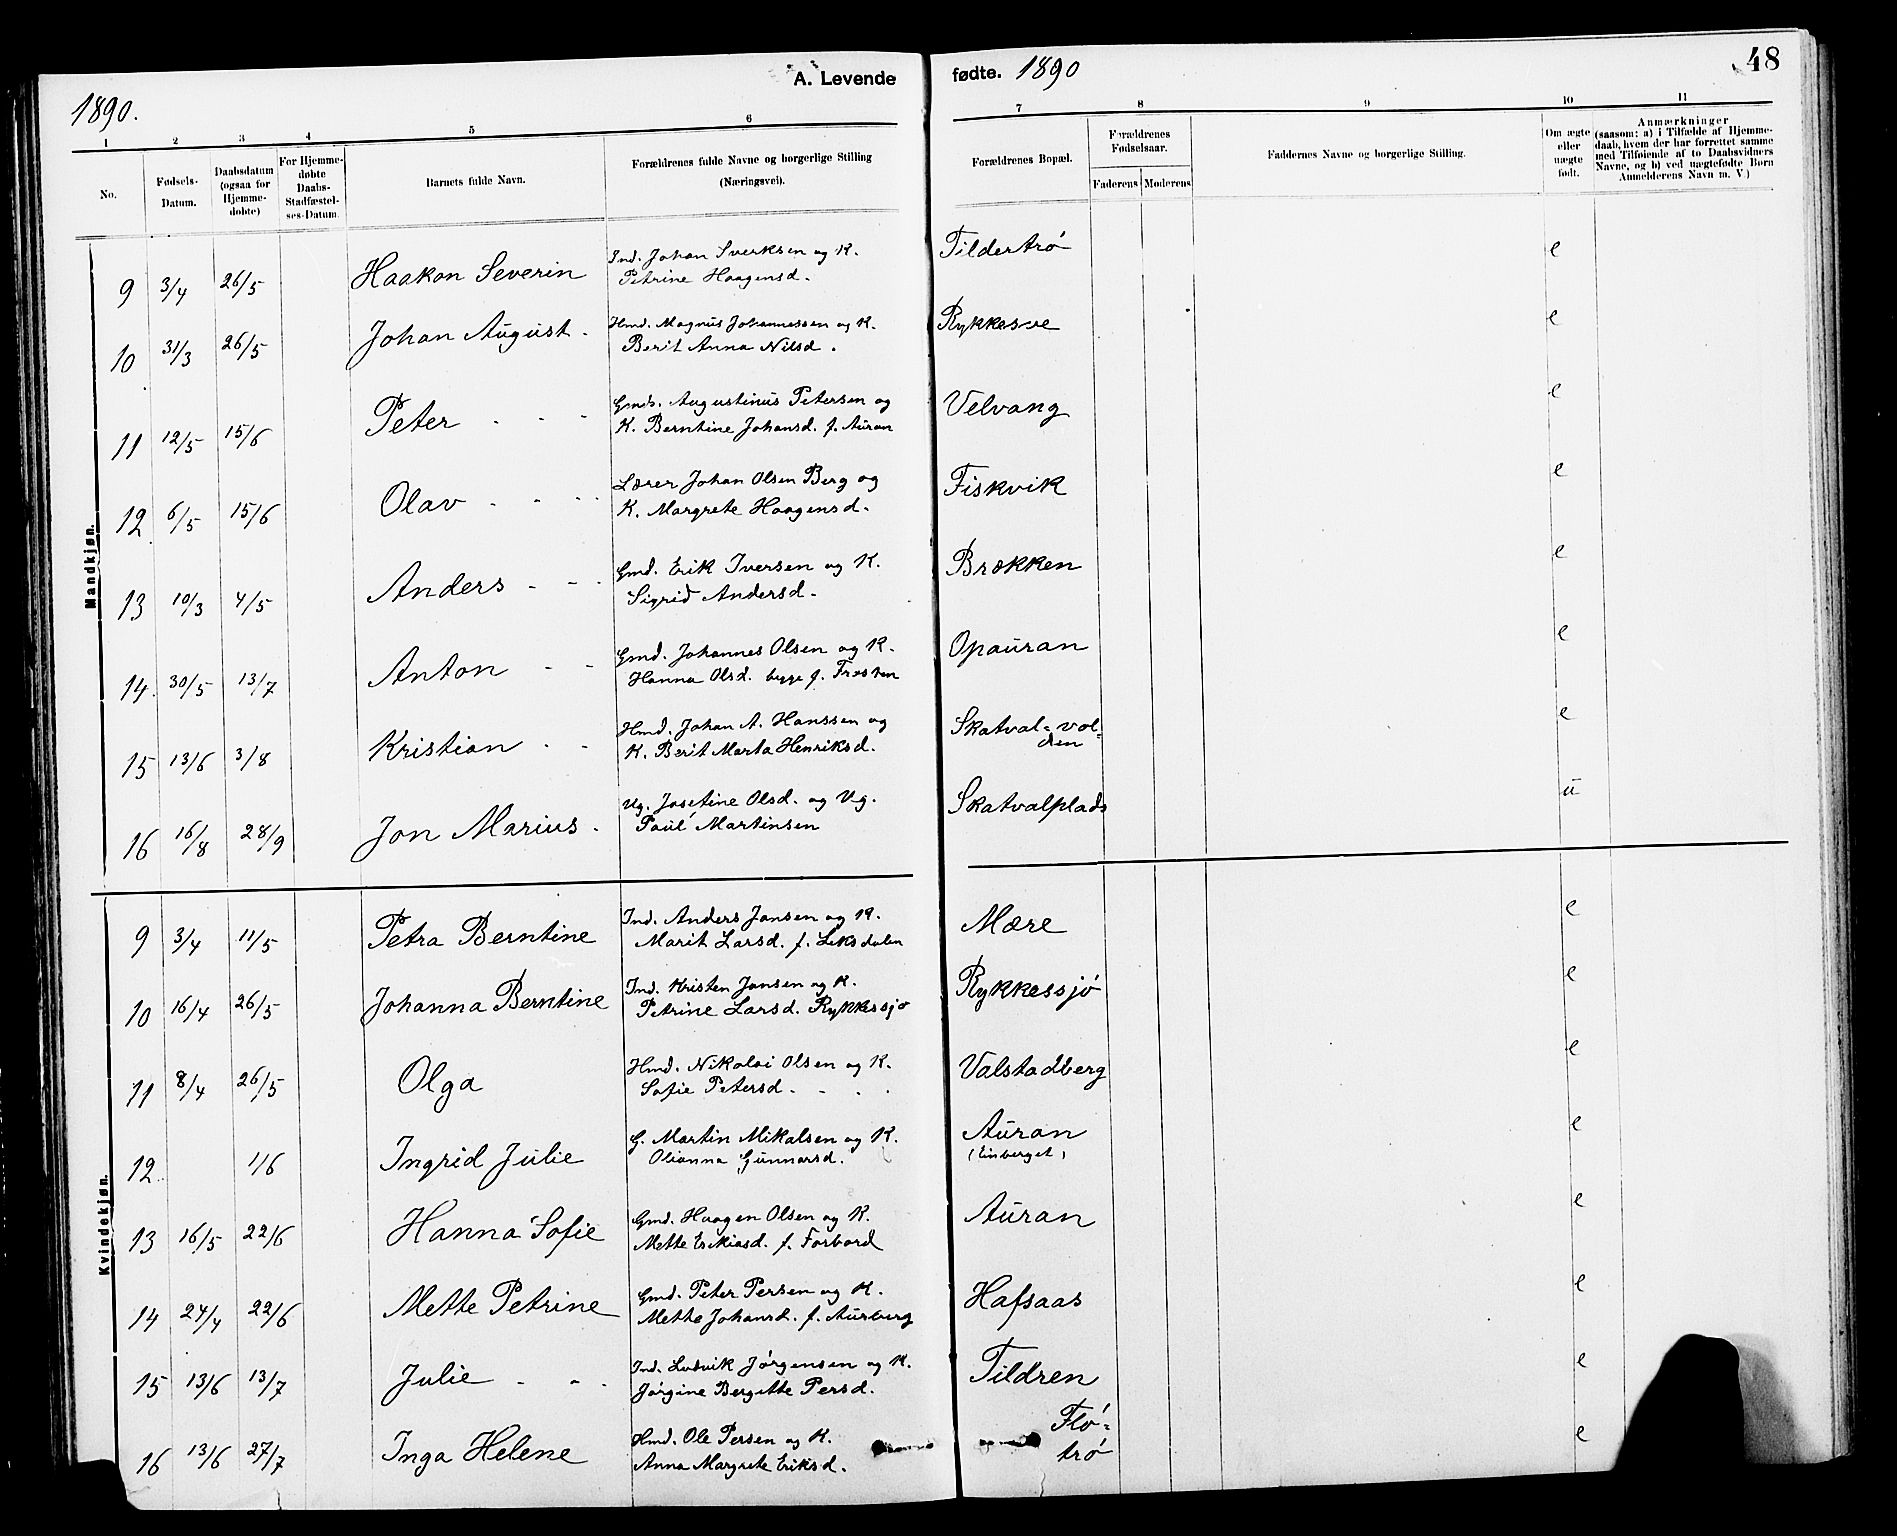 A. Levende
fødte. 1890
48
1890.
1 2 3 4 5 6
7 8 9 10 11
No.
Fødsels-Datum.
Daabsdatum (ogsaa for Hjemmedøbte)
For Hjemmedøbte Daabs-Stadfæstelses-Datum.
Barnets fulde Navn.
Forældrenes fulde Navne og borgerlige Stilling (Næringsvei).
Forældrenes Bopæl.
Forældrenes Fødselsaar.
Faderens Moderens
Faddernes Navne og borgerlige Stilling.
Om ægte eller uægte født.
Anmærkninger (saasom: a) i Tilfælde af Hjemmedaab, hvem der har forrettet samme med Tilføiende af to Daabsvidners Navne, og b) ved uægtefødte Børn Anmelderens Navn m. V.)
Mandkjøn.
9 3/4 26/5 Haakon Severin Ind. Johan Sverksen og K. Tildertrö e
Petrine Haagensd.
10 31/3 26/5 Johan August. Hmd. Magnus Johannessen og K. Rykkesve e
Berit Anna Nilsd.
11 12/5 15/6 Peter Gmds. Augustinus Petersen og Velvang e
K. Berntine Johansd. f. Auran
12 6/5 15/6 Olav Lærer Johan Olsen Berg og Fiskvik e
K. Margrete Haagensd.
13 10/3 4/5 Anders Gmd. Erik Iversen og K. Brækken e
Sigrid Andersd.
14. 30/5 13/7 Anton Gmd. Johannes Olsen og K. Opauran e
Hanna Olsd. begge f. Frosten
15 13/6 3/8 Kristian Hmd. Johan A. Hanssen og Skatval=vol=
K. Berit Marta Henriksd. den e
16 16/8 28/9 Jon Marius. Ug. Josefine Olsd. og Ug. Skatvalplads u
Paul Martinsen
Kvindekjøn.
9 3/4 11/5 Petra Berntine Ind. Anders Jansen og K. Mære e
Marit Larsd. f. Leksdalen
10 16/4 26/5 Johanna Berntine Ind. Kristen Jansen og K. Rykkessjö e
Petrine Larsd. Rykkessjö
11 8/4 26/5 Olga Hmd. Nikolai Olsen og K. Valstadberg e
Sofie Petersd.
12. 1/6 Ingrid Julie G. Martin Mikalsen og K. Auran e
Olianna Gunnarsd. (Einberget)
13 16/5 22/6 Hanna Sofie Gmd. Haagen Olsen og K. Auran e
Mette Esekiasd. f. Forbord
14 24/4 22/6 Mette Petrine Gmd. Peter Persen og K. Hafsaas e
Mette Johansd. f. Aurberg
15 13/6 13/7 Julie Ind. Ludvik Jörgensen og K. Tildren e
Jörgine Bergitte Persd.
16 13/6 27/7 Inga Helene Hmd. Ole Persen og K. Flö=
Anna Margrete Eriksd. trö e